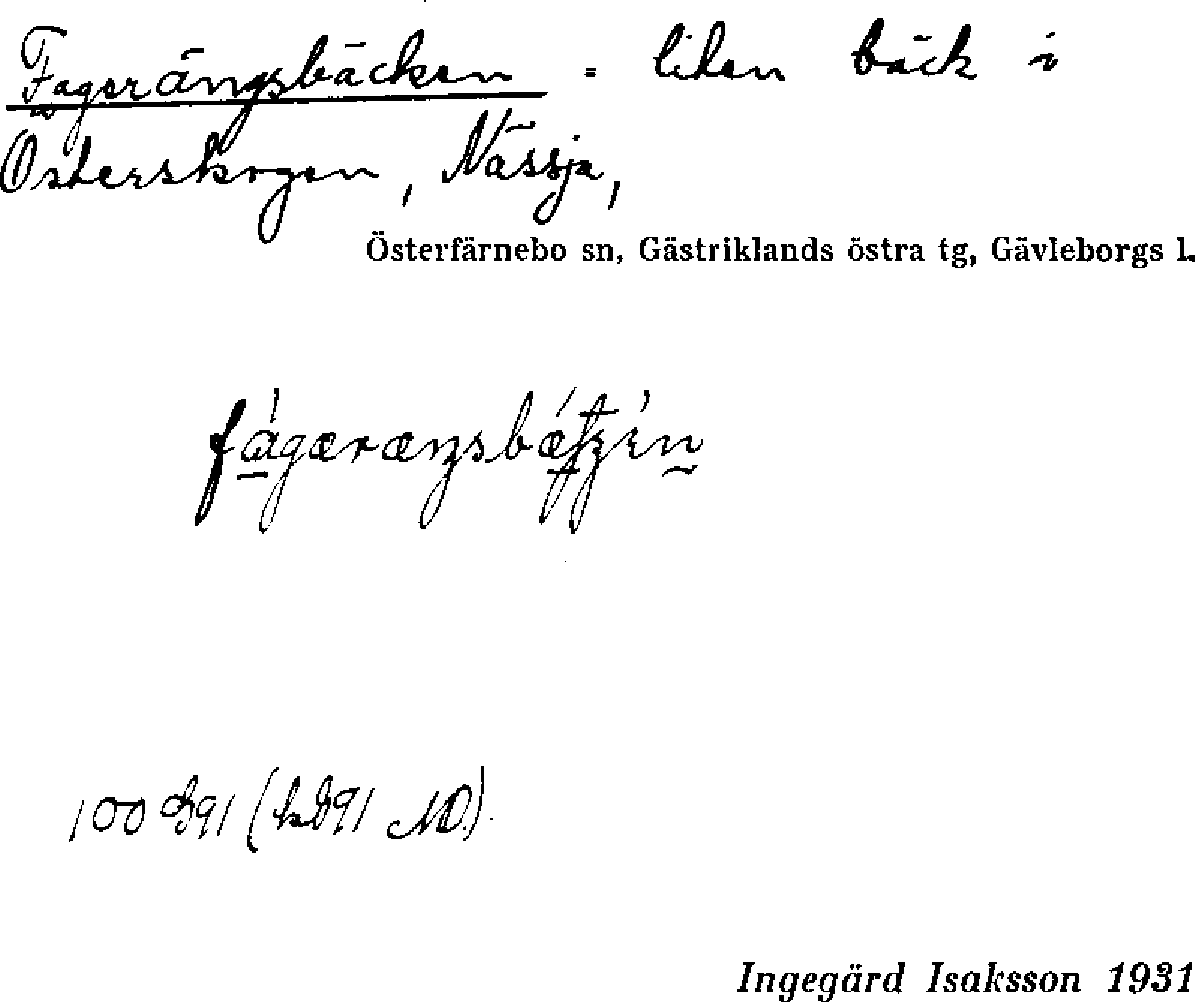 Fagerängsbäcken = liten bäck i
Österskogen, Nässja,
Österfärnebo sn, Gästriklands östra tg, Gävleborgs l.
100
Ingegärd Isaksson 1931